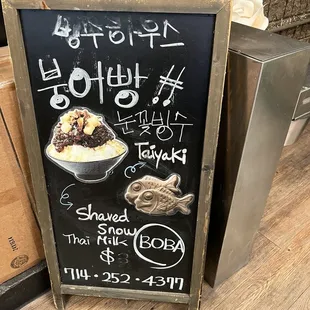 빙수하우스
붕어빵!!
눈꽃빙수
Taiyaki
Shaved
Snow
Thai Milk
BOBA
$
714·252·4377